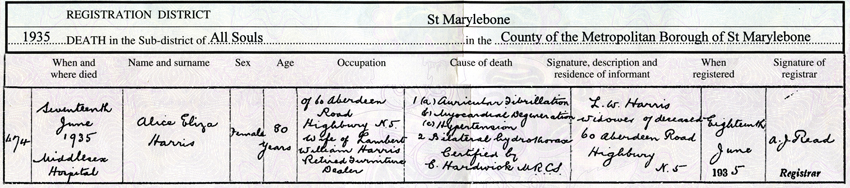 REGISTRATION DISTRICT St Marylebone
1935 DEATH in the Sub-district of All Souls in the County of the Metropolitan Borough of St Marylebone
When and where died
Name and surname
Sex
Age
Occupation
Cause of death
Signature, description and residence of informant
When registered
Signature of registrar
474
Seventeenth
June
1935
Middlesex
Hospital
Alice Eliza
Harris
Female
80
years
of 60 Aberdeen
Road
Highbury N.5
Wife of Lambert
William Harris
Retired Furniture
Dealer
1 (a) Auricular Fibrillation
(b) Myocardial Degeneration
(c) Hypertension
2 Bilateral hydrothorax
Certified by
C. Hardwick M.R.C.S.
L. W. Harris
Widower of deceased
60 Aberdeen Road
Highbury
N.5
Eighteenth
June
1935
A. J. Read
Registrar